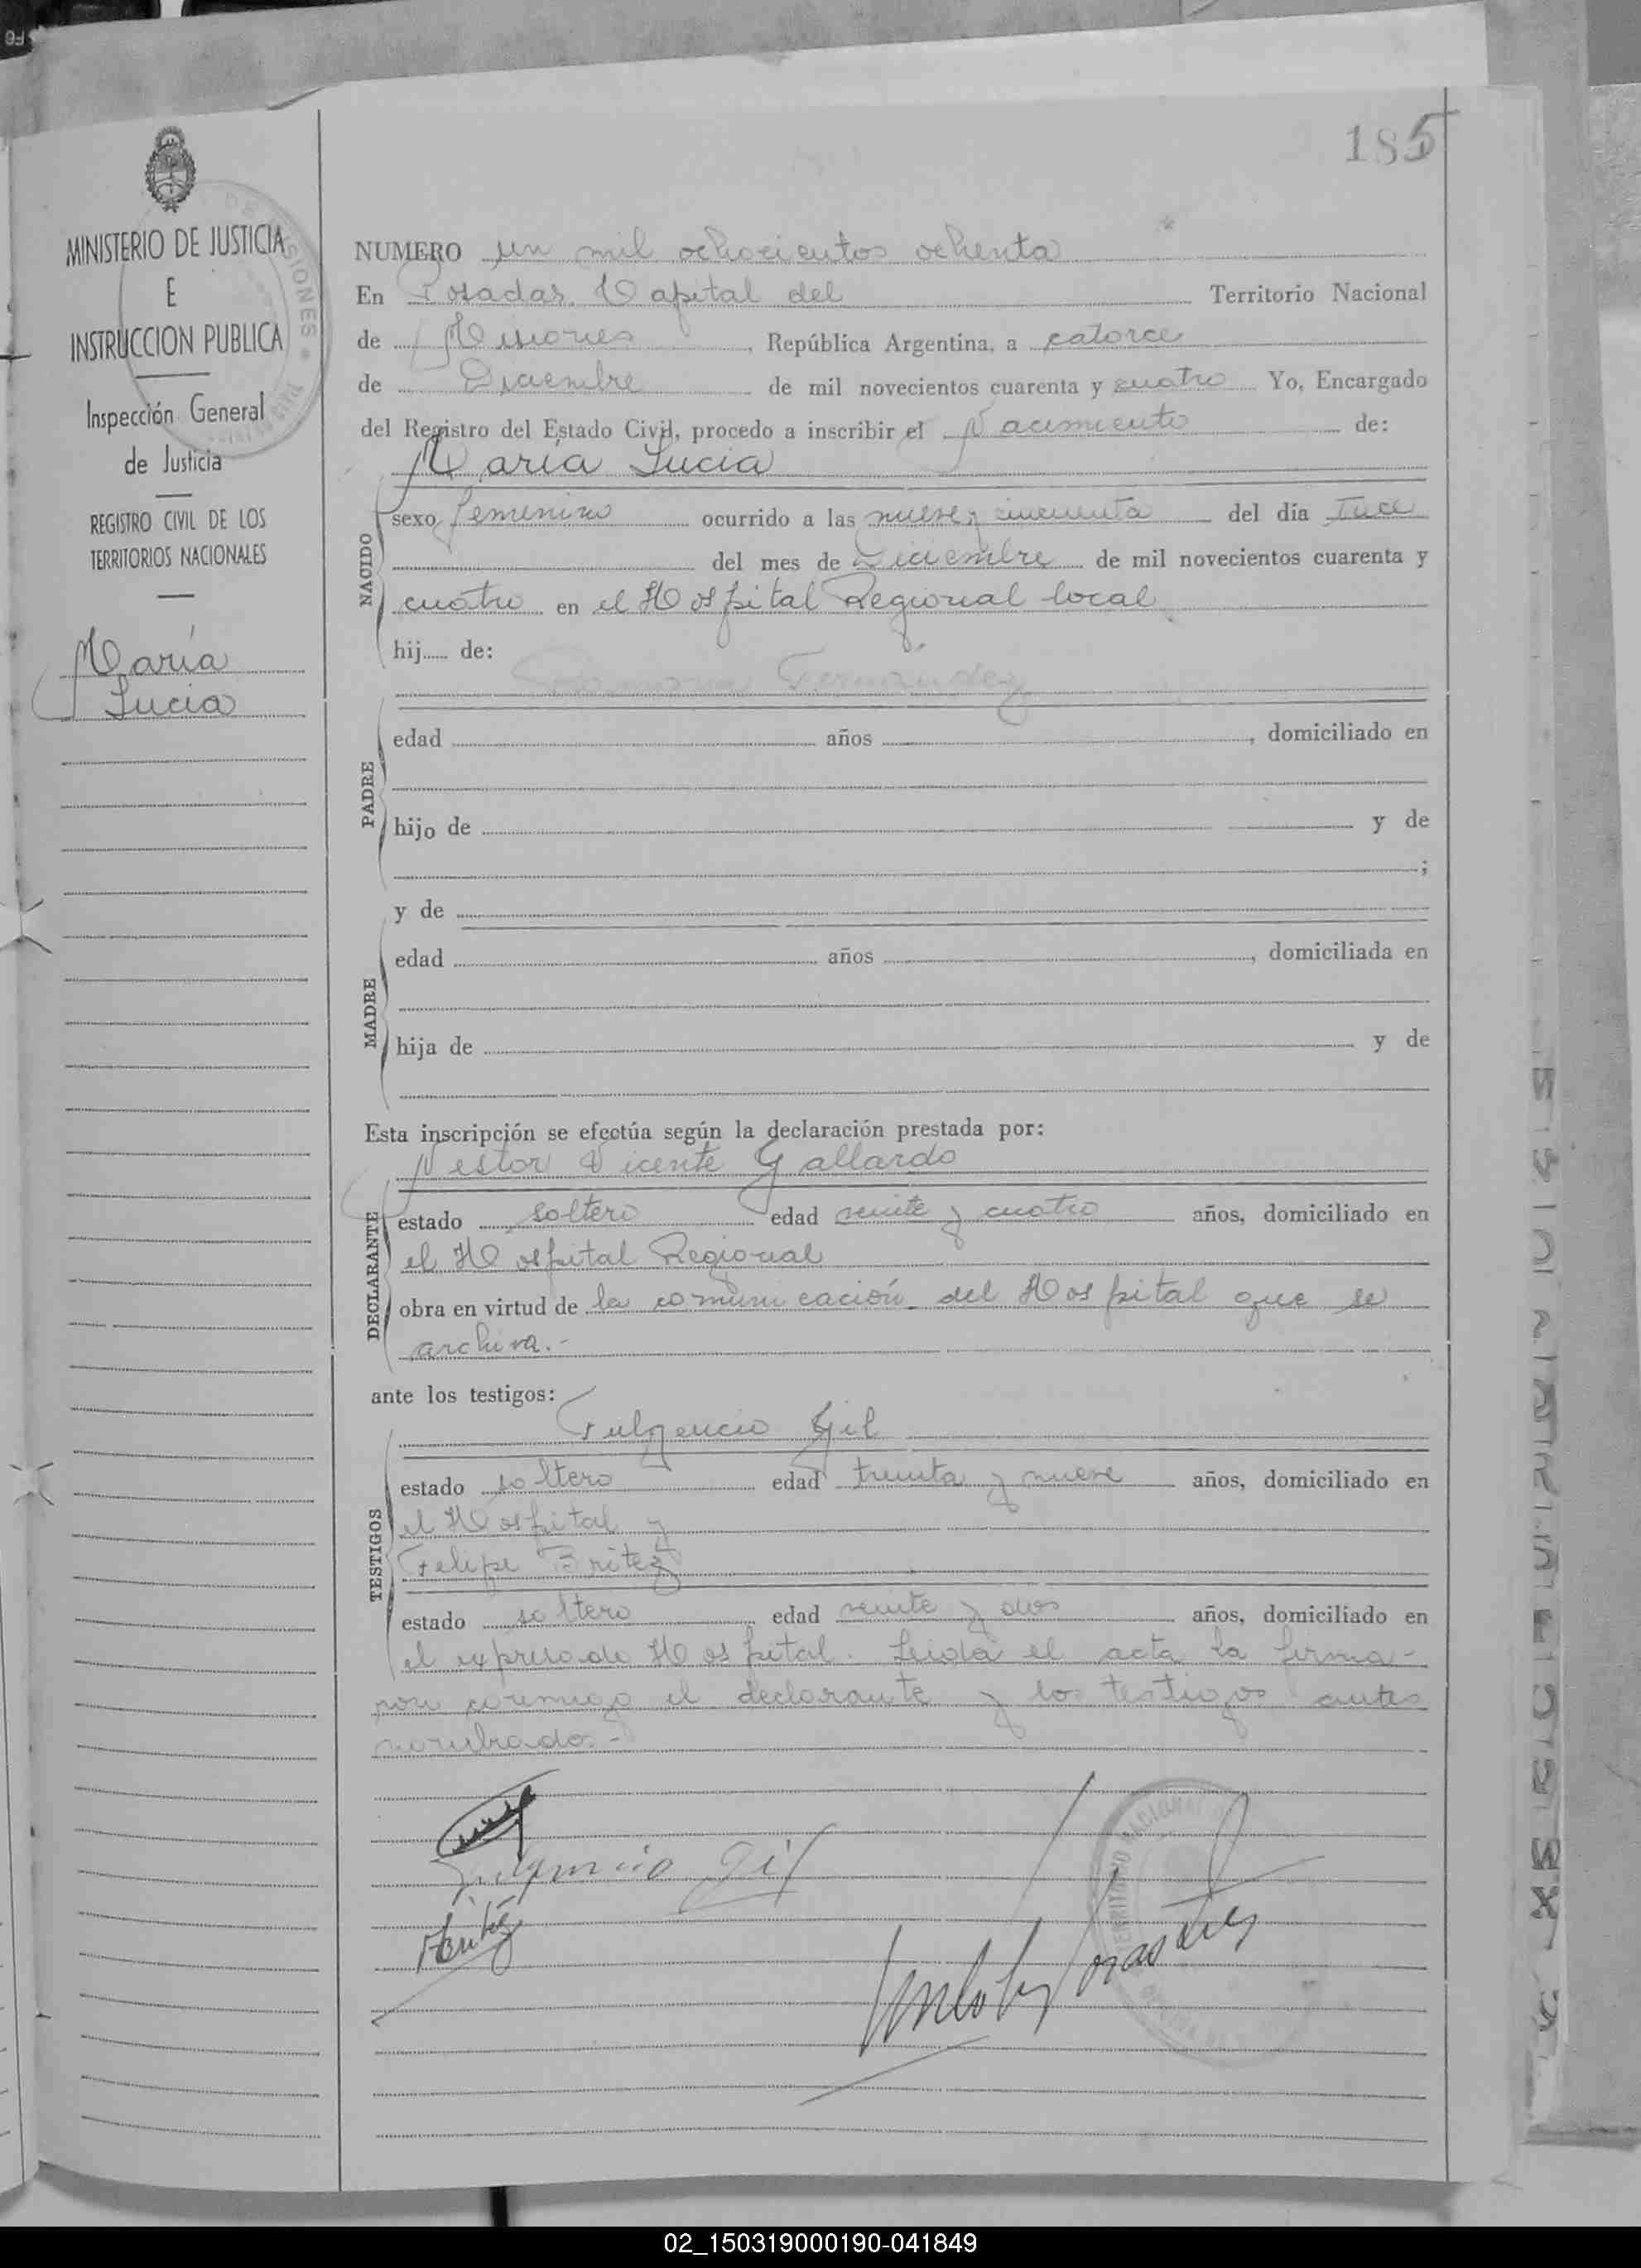 185
MINISTERIO DE JUSTICIA
E
INSTRUCCION PUBLICA
Inspección General
de Justicia
REGISTRO CIVIL DE LOS
TERRITORIOS NACIONALES
María
Lucia
NUMERO un mil ochocientos ochenta
En Posadas, Capital del Territorio Nacional
de Misiones, República Argentina, a catorce
de Diciembre de mil novecientos cuarenta y cuatro Yo, Encargado
del Registro del Estado Civil, procedo a inscribir el Nacimiento de:
María Lucia
NACIDO
sexo femenino ocurrido a las nueve y cincuenta del día
del mes de Diciembre de mil novecientos cuarenta y
cuatro en el Hospital Regional local
hij de:
Fernández
PADRE
edad años , domiciliado en
hijo de y de
;
y de
MADRE
edad años , domiciliada en
hija de y de
Esta inscripción se efectúa según la declaración prestada por:
Nestor Vicente Gallardo
DECLARANTE
estado soltero edad veinte y cuatro años, domiciliado en
el Hospital Regional
obra en virtud de la comunicación del Hospital que se
archiva.-
ante los testigos:
Fulgencio Gil
TESTIGOS
estado soltero edad treinta y nueve años, domiciliado en
el Hospital y
Felipe Britez
estado soltero edad veinte y dos años, domiciliado en
el expresado Hospital. Leida el acta la firma-
ron conmigo el declarante y los testigos antes
nombrados.-
Fulgencio Gil
Britez
02_150319000190-041849